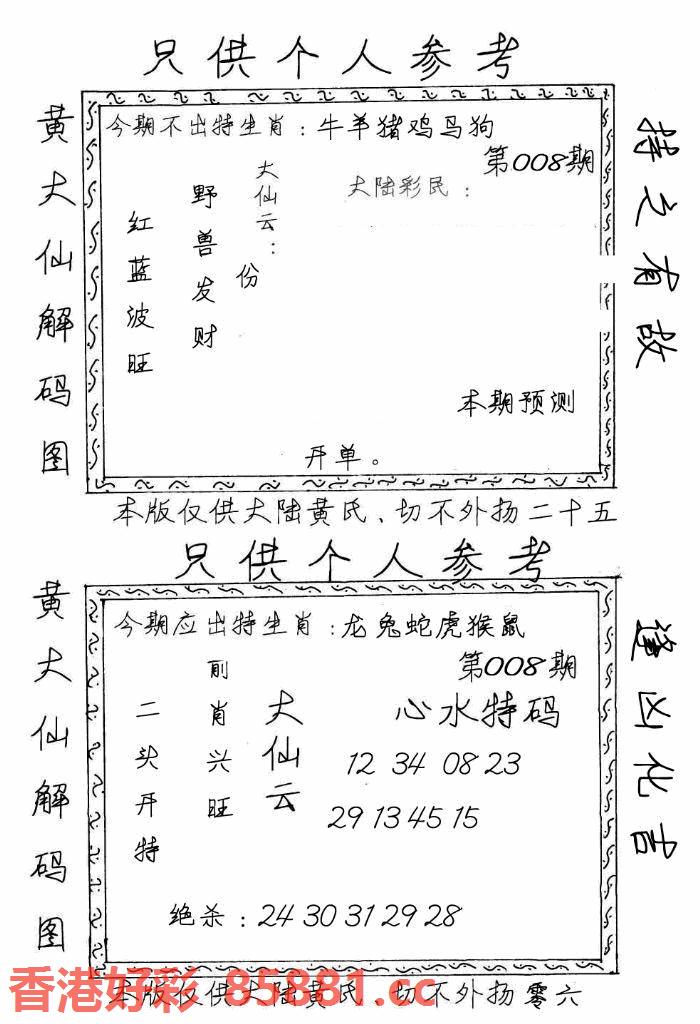 只供个人参考
黄大仙解码图
今期不出特生肖：牛羊猪鸡马狗
第008期
大仙云：
大陆彩民：
野兽发财
份
红蓝波旺
本期预测
开单。
持之有故
本版仅供大陆黄氏、切不外扬二十五
只供个人参考
黄大仙解码图
今期应出特生肖：龙兔蛇虎猴鼠
第008期
大仙云
前肖兴旺
二头开特
心水特码
12 34 08 23
29 13 45 15
绝杀：24 30 31 29 28
逢凶化吉
本版仅供大陆黄氏、切不外扬零六
香港好彩 85881.cc